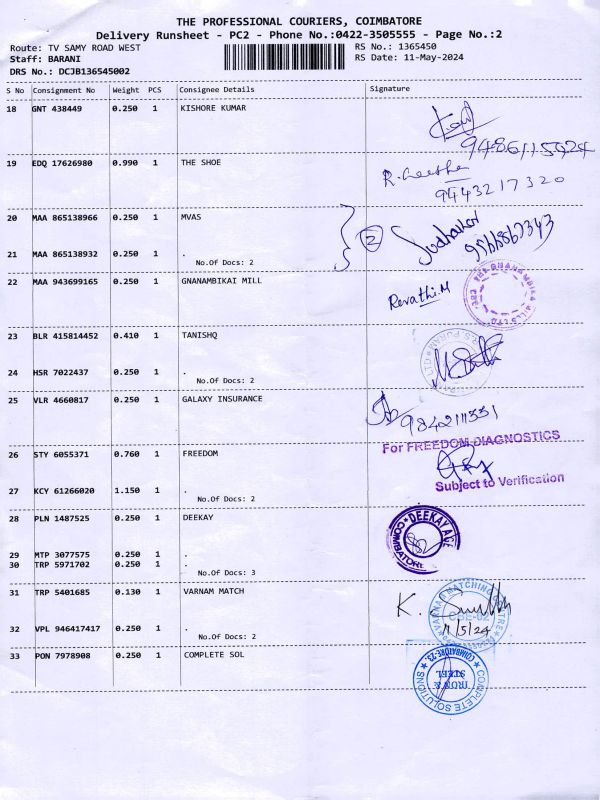 THE PROFESSIONAL COURIERS, COIMBATORE
Delivery Runsheet - PC2 - Phone No.:0422-3505555 - Page No.:2
Route: TV SAMY ROAD WEST
Staff: BARANI
DRS No.: DCJB136545002
RS No.: 1365450
RS Date: 11-May-2024
S No Consignment No Weight PCS Consignee Details Signature
18 GNT 438449 0.250 1 KISHORE KUMAR
9486115924
19 EDQ 17626980 0.990 1 THE SHOE
R. Geetha
9443217320
20 MAA 865138966 0.250 1 MVAS
2 Sudhakar
9566867343
21 MAA 865138932 0.250 1 .
No.Of Docs: 2
22 MAA 943699165 0.250 1 GNANAMBIKAI MILL
Revathi.M
23 BLR 415814452 0.410 1 TANISHQ
24 HSR 7022437 0.250 1 .
No.Of Docs: 2
25 VLR 4660817 0.250 1 GALAXY INSURANCE
9842111331
For FREEDOM DIAGNOSTICS
26 STY 6055371 0.760 1 FREEDOM
Subject to Verification
27 KCY 61266020 1.150 1 .
No.Of Docs: 2
28 PLN 1487525 0.250 1 DEEKAY
DEEKAY AGE
COIMBATORE
29 MTP 3077575 0.250 1 .
30 TRP 5971702 0.250 1 .
No.Of Docs: 3
31 TRP 5401685 0.130 1 VARNAM MATCH
VARNAM MATCHING CENTRE
K.
11/5/24
32 VPL 946417417 0.250 1 .
No.Of Docs: 2
33 PON 7978908 0.250 1 COMPLETE SOL
COMPLETE SOLUTIONS
COIMBATORE-23.
IRON &
STEEL